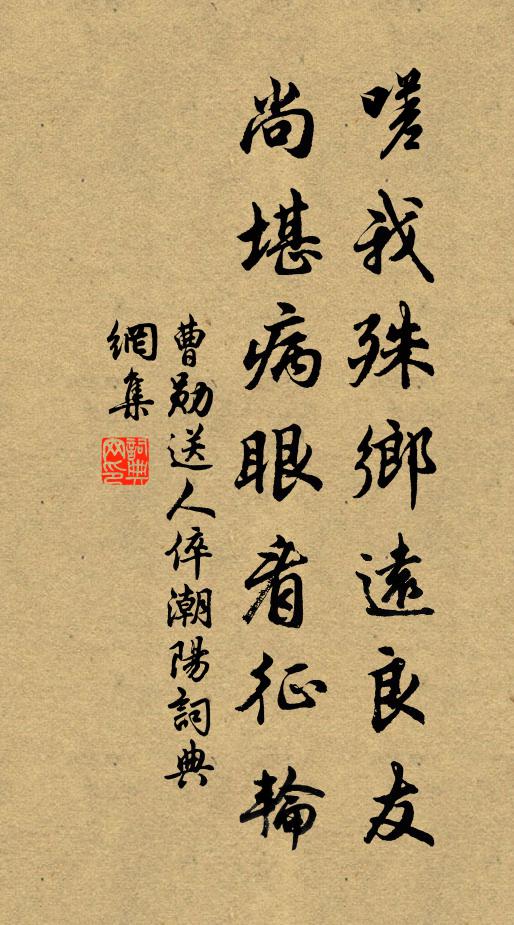 嗟我殊鄉遠良友
尚堪病眼看征輪
曹勛送人倅潮陽詞典
網集
詞典
網印